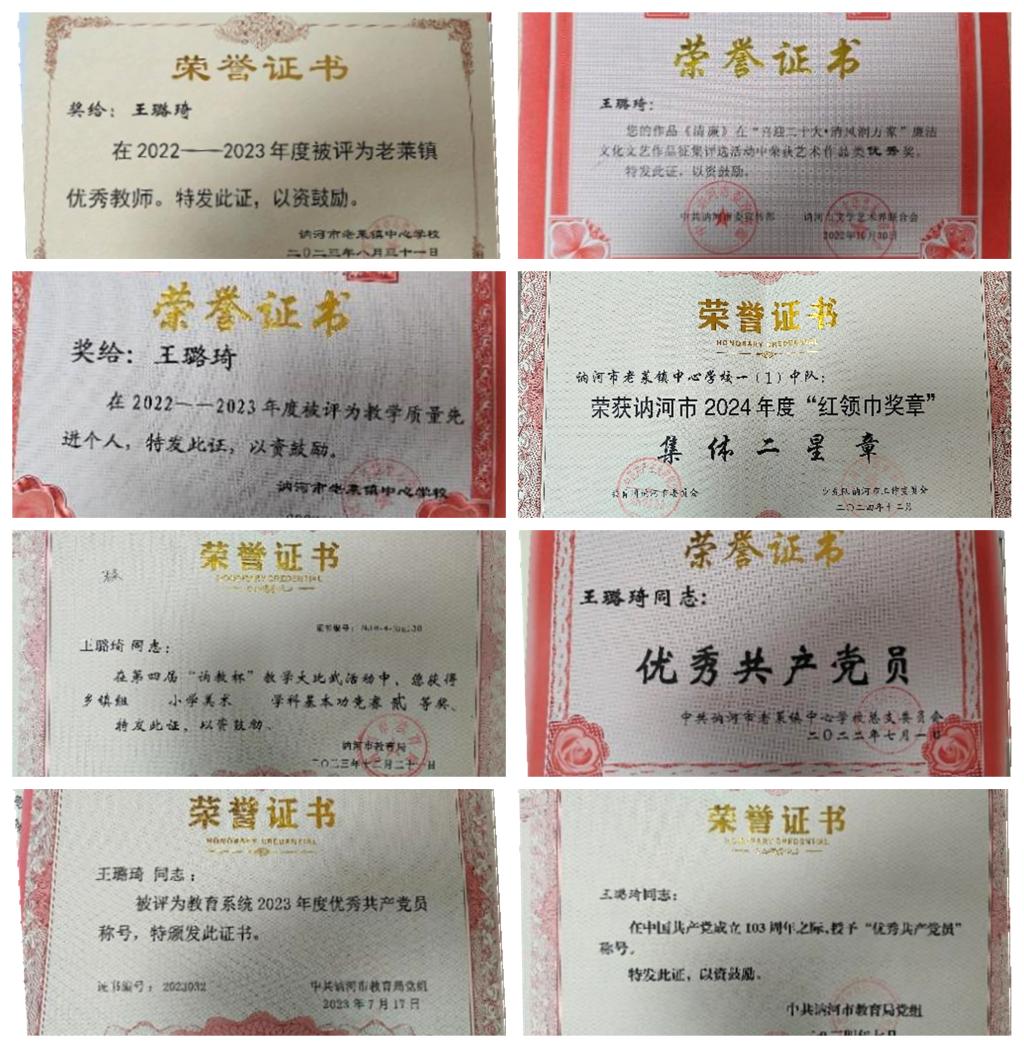 荣誉证书
奖给：王璐琦
在2022——2023年度被评为老莱镇
优秀教师。特发此证，以资鼓励。
讷河市老莱镇中心学校
二〇二三年八月三十一日
荣誉证书
王璐琦：
您的作品《清廉》在“喜迎二十大·清风润万家”廉洁
文化文艺作品征集评选活动中荣获艺术作品类优秀奖。
特发此证，以资鼓励。
中共讷河市委宣传部 讷河市文学艺术界联合会
2022年10月30日
荣誉证书
奖给：王璐琦
在2022——2023年度被评为教学质量先
进个人，特发此证，以资鼓励。
讷河市老莱镇中心学校
荣誉证书
HONORARY CREDENTIAL
讷河市老莱镇中心学校一（1）中队：
荣获讷河市2024年度“红领巾奖章”
集体二星章
共青团讷河市委员会 少先队讷河市工作委员会
二〇二四年十二月
荣誉证书
HONORARY CREDENTIAL
证书编号：
王璐琦同志：
在第四届“讷教杯”教学大比武活动中，您获得
乡镇组 小学美术 学科基本功竞赛 贰 等奖、
特发此证，以资鼓励、
讷河市教育局
二〇二三年十二月二十一日
荣誉证书
王璐琦同志：
优秀共产党员
中共讷河市老莱镇中心学校总支委员会
二〇二二年七月一日
荣誉证书
HONORARY CREDENTIAL
王璐琦 同志：
被评为教育系统2023年度优秀共产党员
称号，特颁发此证书。
证书编号：2023032 中共讷河市教育局党组
2023年7月17日
荣誉证书
HONORARY CREDENTIAL
王璐琦同志：
在中国共产党成立103周年之际，授予“优秀共产党员”
称号。
特发此证，以资鼓励。
中共讷河市教育局党组